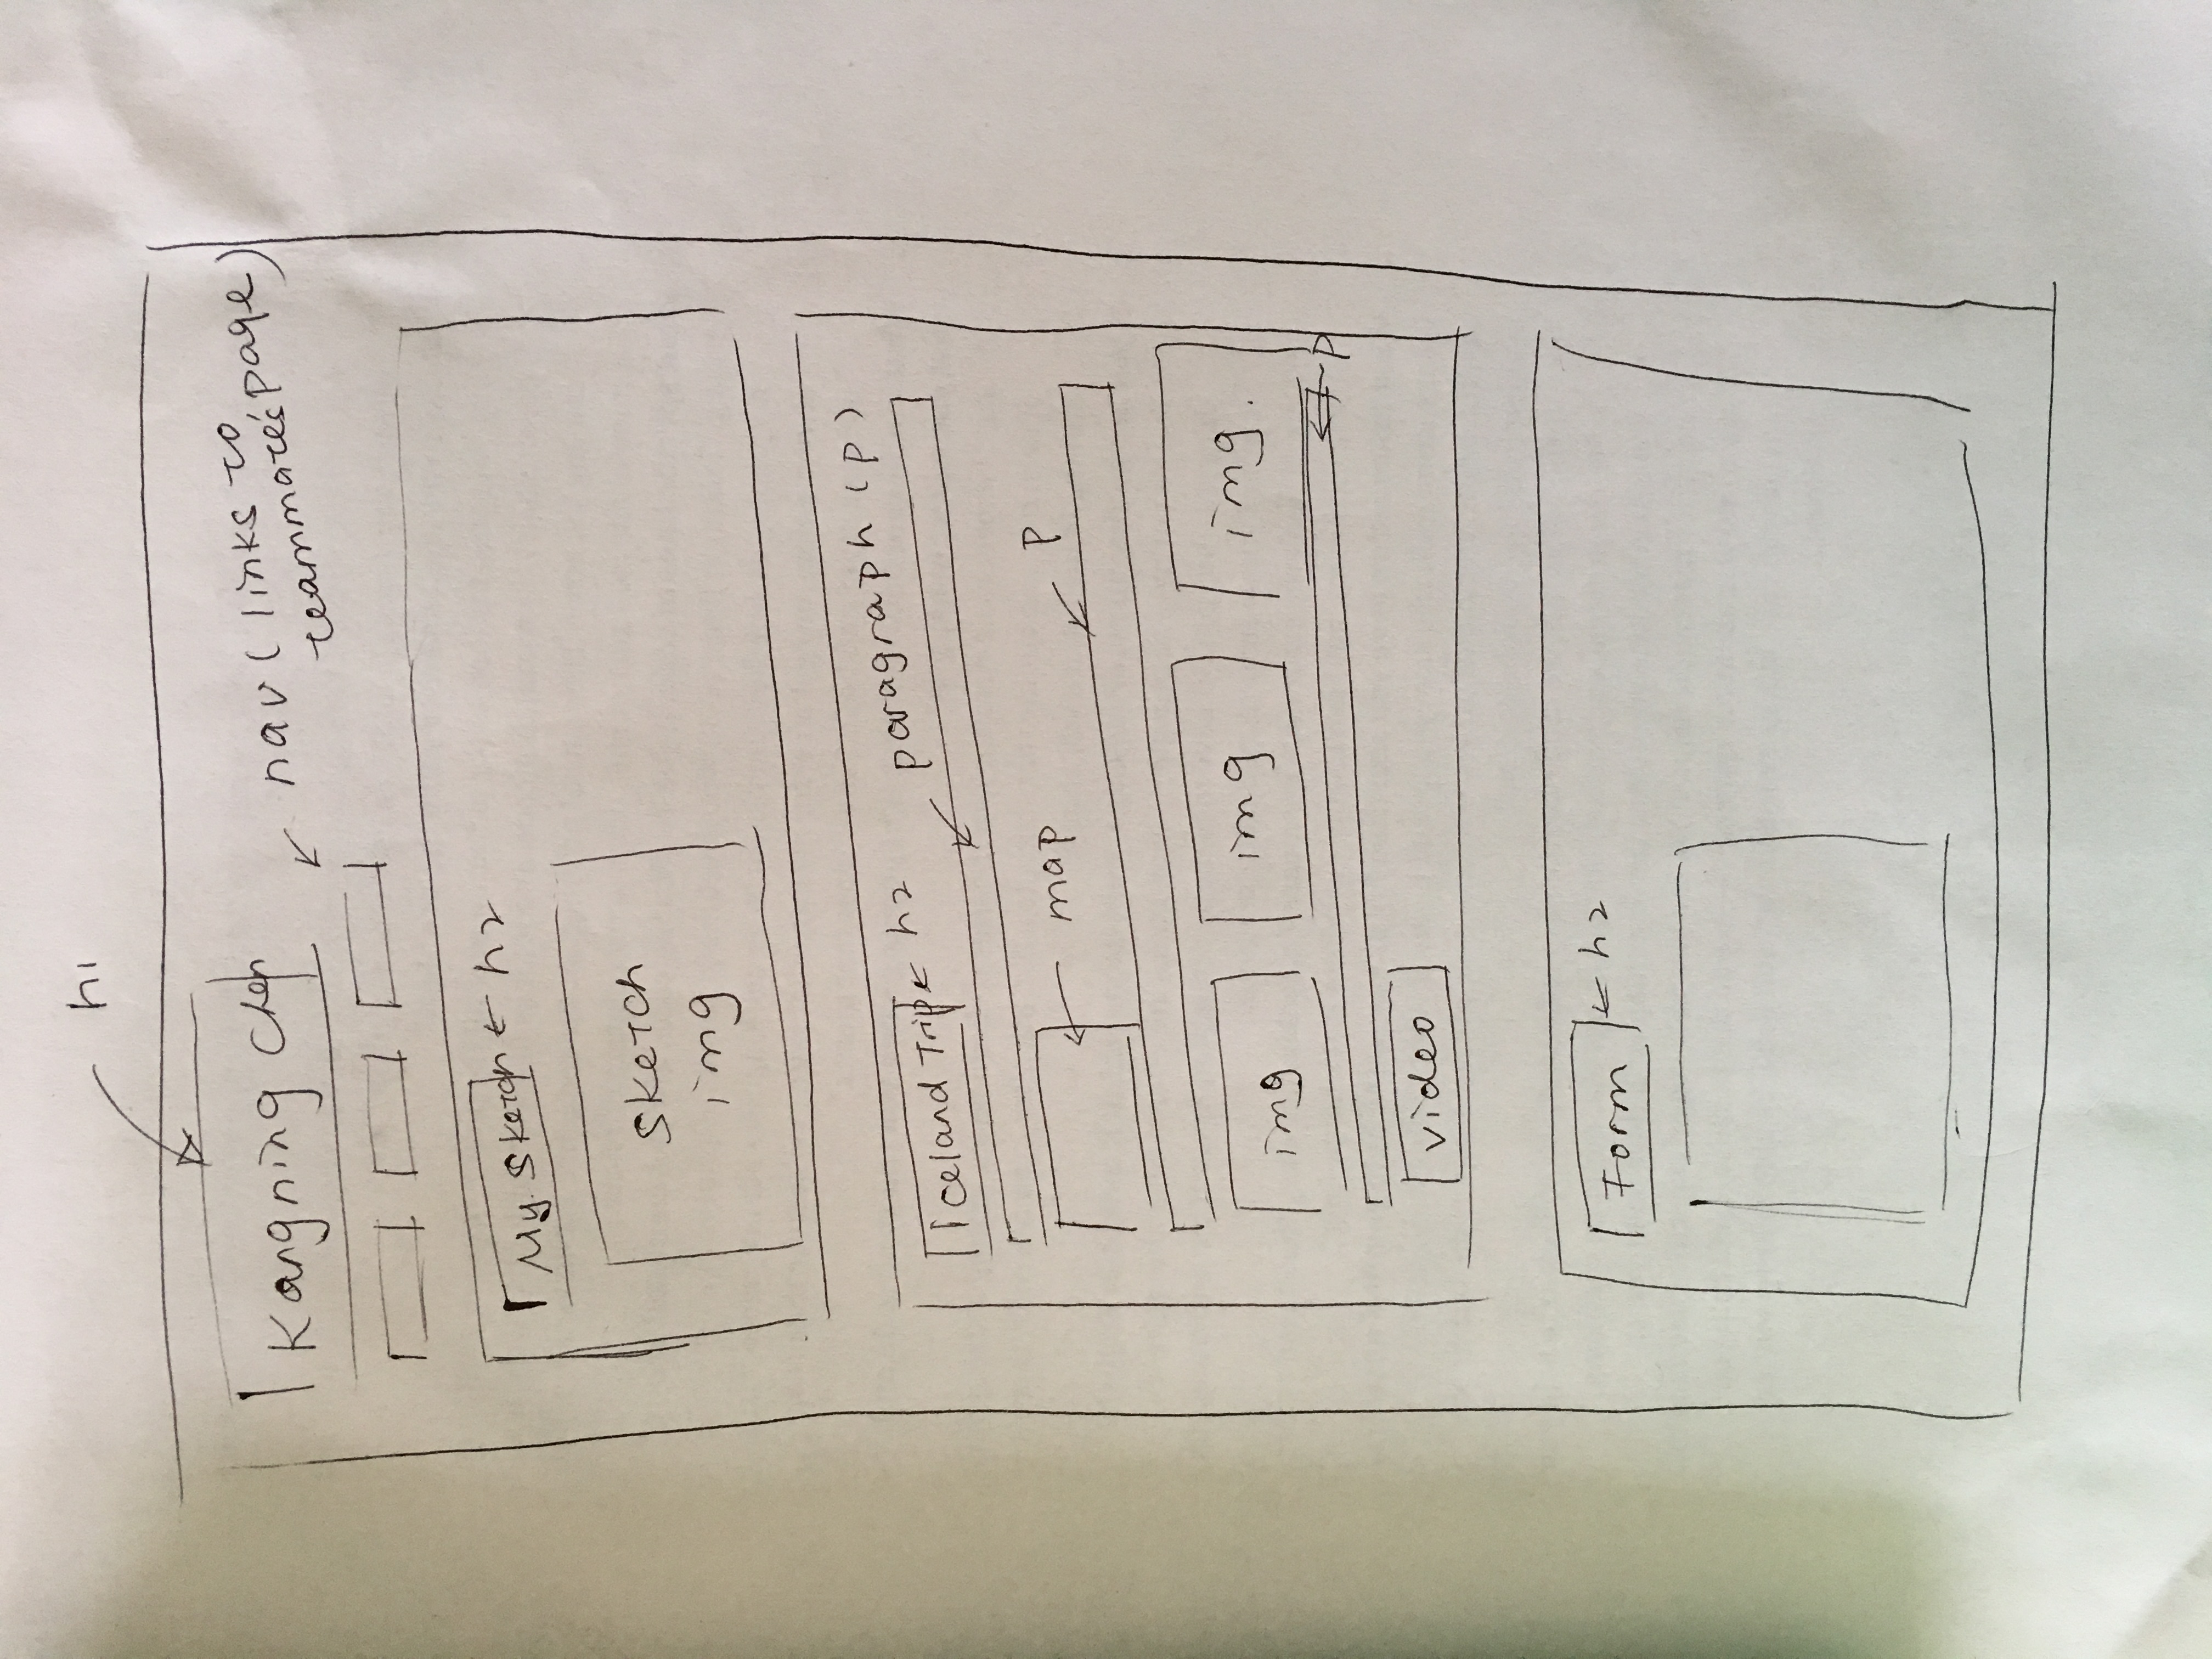 h1
Kangning Chen
nav ( links to
teammate's page)
My Sketch ← h2
Sketch
img
Iceland Trip ← h2
paragraph (p)
map
p
img
img
img.
p
video
Form ← h2